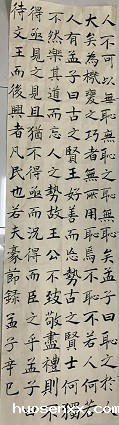 人不可以無恥無恥之恥無恥矣孟子曰恥之於人
大矣為機變之巧者無所用恥焉不恥不若人何若
人有孟子曰古之賢王好善而忘勢古之賢士何獨
不然樂其道而忘人之勢故王公不致敬盡禮則不
得亟見之見且猶不得亟而況得而臣之乎孟子曰
待文王而後興者凡民也若夫豪節錄孟子辛巳